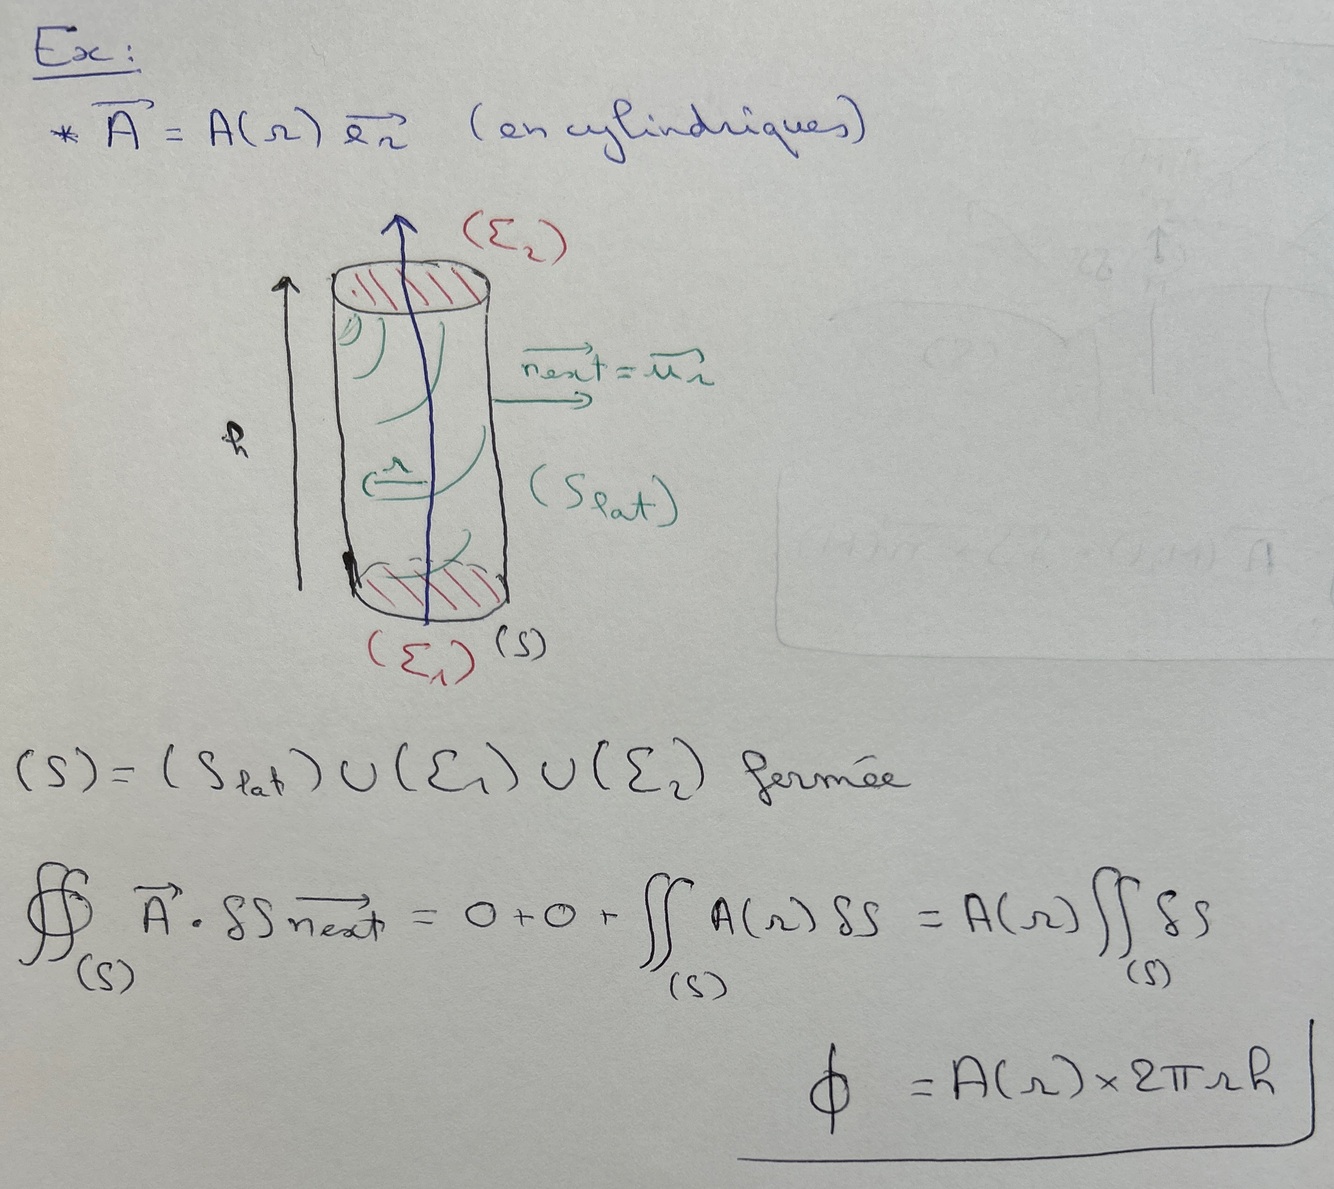 Ex:
* A⃗ = A(r) e⃗r (en cylindriques)
(Σ₂)
n⃗ext = u⃗r
h
r
(Slat)
(Σ₁) (S)
(S) = (Slat) ∪ (Σ₁) ∪ (Σ₂) fermée
∯(S) A⃗ . δS n⃗ext = 0 + 0 + ∬(S) A(r) δS = A(r) ∬(S) δS
ϕ = A(r) × 2πrh